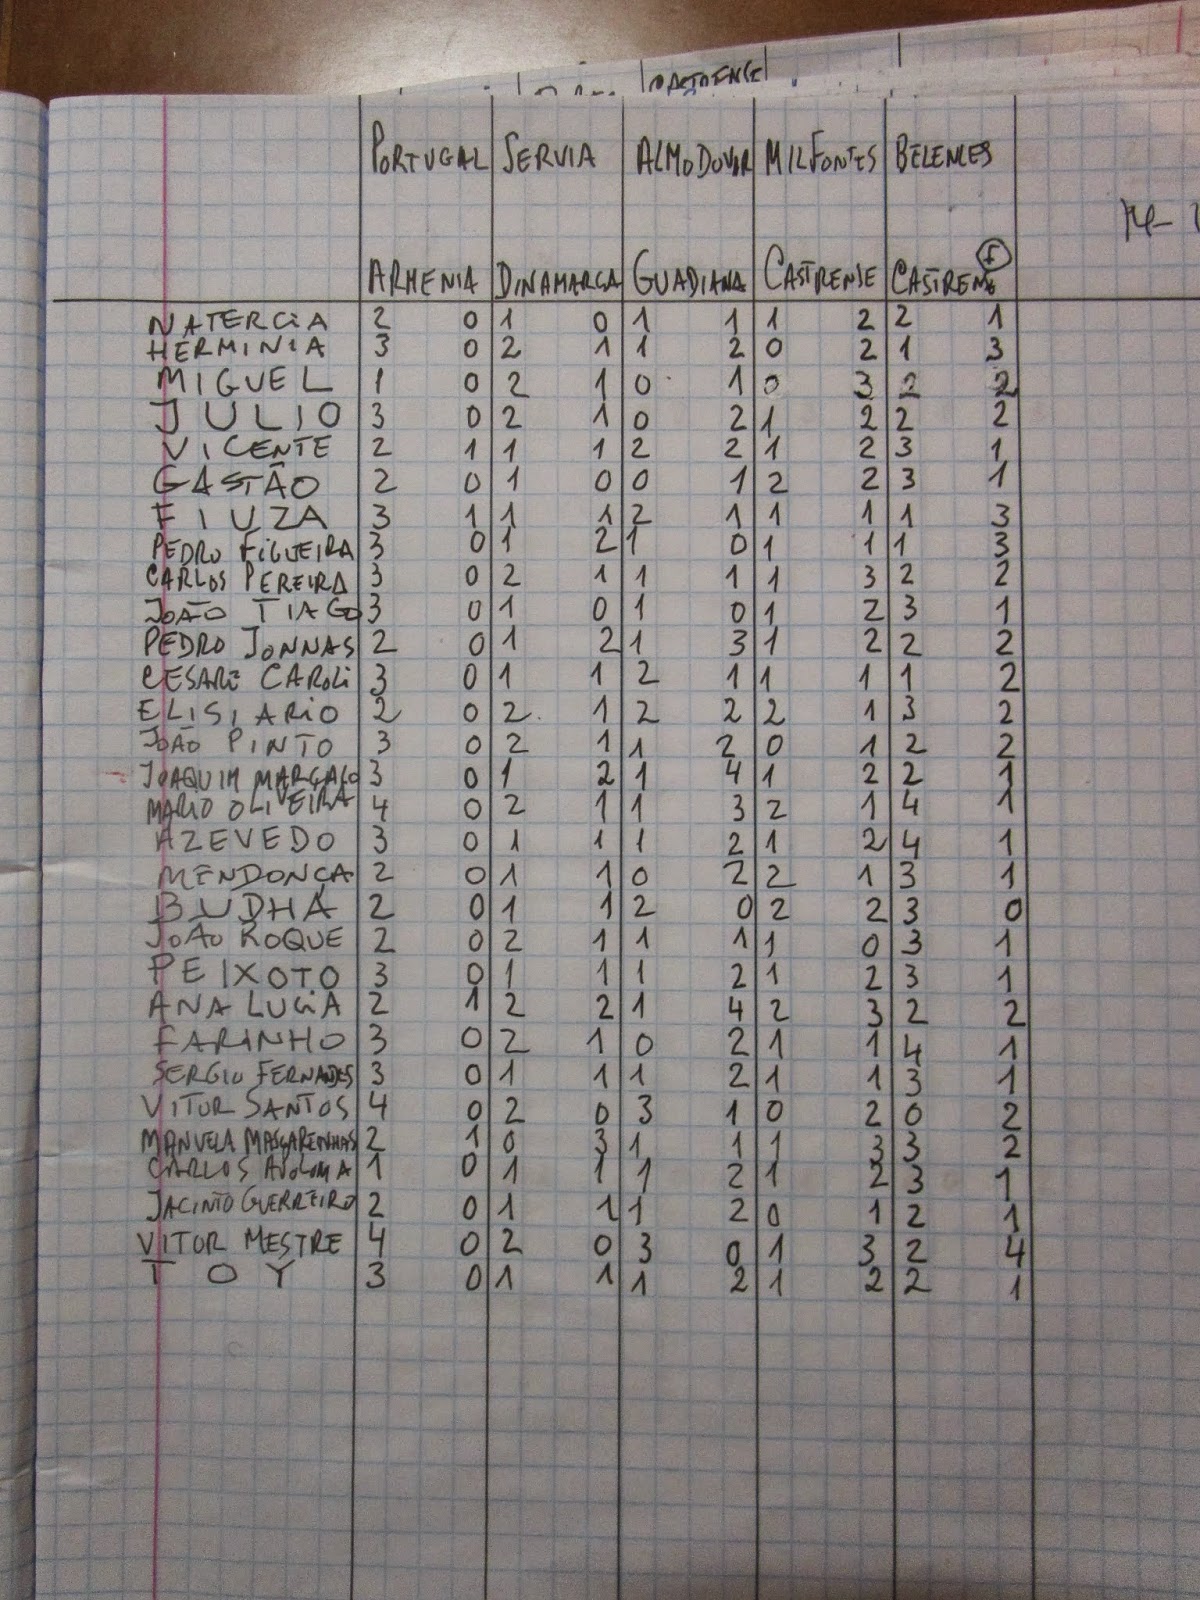 CASTRENSE
PORTUGAL SERVIA ALMODOVAR MILFONTES BELENCES
ARMENIA DINAMARCA GUADIANA CASTRENSE CASTRENSE F
NATERCIA 2 0 1 0 1 1 1 2 2 1
HERMINIA 3 0 2 1 1 2 0 2 1 3
MIGUEL 1 0 2 1 0 1 0 3 2 2
JULIO 3 0 2 1 0 2 1 2 2 2
VICENTE 2 1 1 1 2 2 1 2 3 1
GASTÃO 2 0 1 0 0 1 2 2 3 1
FIUZA 3 1 1 1 2 1 1 1 1 3
PEDRO FIGUEIRA 3 0 1 2 1 0 1 1 1 3
CARLOS PEREIRA 3 0 2 1 1 1 1 3 2 2
JOÃO TIAGO 3 0 1 0 1 0 1 2 3 1
PEDRO JONNAS 2 0 1 2 1 3 1 2 2 2
CESARE CAROLI 3 0 1 1 2 1 1 1 1 2
ELISIARIO 2 0 2 1 2 2 2 1 3 2
JOÃO PINTO 3 0 2 1 1 2 0 1 2 2
JOAQUIM MARGALO 3 0 1 2 1 4 1 2 2 1
MARIO OLIVEIRA 4 0 2 1 1 3 2 1 4 1
AZEVEDO 3 0 1 1 1 2 1 2 4 1
MENDONÇA 2 0 1 1 0 2 2 1 3 1
BUDHÁ 2 0 1 1 2 0 2 2 3 0
JOÃO ROQUE 2 0 2 1 1 1 1 0 3 1
PEIXOTO 3 0 1 1 1 2 1 2 3 1
ANA LUCIA 2 1 2 2 1 4 2 3 2 2
FARINHO 3 0 2 1 0 2 1 1 4 1
SERGIO FERNANDES 3 0 1 1 1 2 1 1 3 1
VITOR SANTOS 4 0 2 0 3 1 0 2 0 2
MANUELA MASCARENHAS 2 1 0 3 1 1 1 3 3 2
CARLOS 1 0 1 1 1 2 1 2 3 1
JACINTO GUERREIRO 2 0 1 1 1 2 0 1 2 1
VITOR MESTRE 4 0 2 0 3 0 1 3 2 4
TOY 3 0 1 1 1 2 1 2 2 1